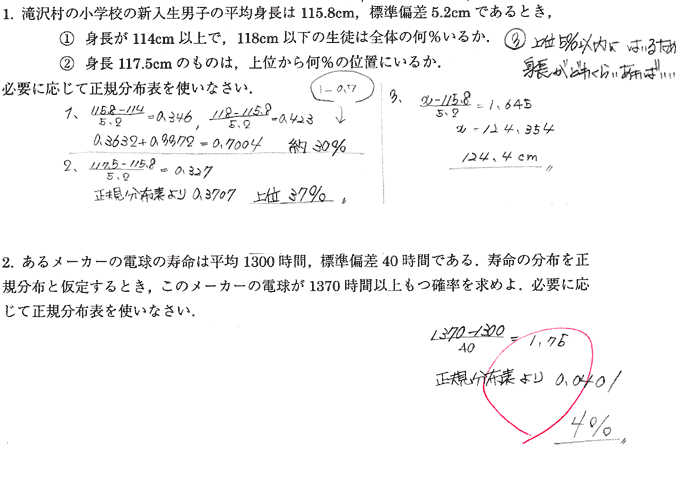 1. 滝沢村の小学校の新入生男子の平均身長は 115.8cm, 標準偏差 5.2cm であるとき,
① 身長が 114cm 以上で, 118cm 以下の生徒は全体の何%いるか.
③ 上位5%以内に はいるため
身長がどれくらいあれば…
② 身長 117.5cm のものは, 上位から何%の位置にいるか.
必要に応じて正規分布表を使いなさい.
1-0.7
1、 115.8-114/5.2=0.346, 118-115.8/5.2=0.423
0.3632+0.3372=0.7004 約30%
2、 117.5-115.8/5.2=0.327
正規分布表より 0.3707 上位 37%〃
3、 x-115.8/5.2=1.645
x=124.354
124.4cm〃
2. あるメーカーの電球の寿命は平均 1300 時間, 標準偏差 40 時間である. 寿命の分布を正
規分布と仮定するとき, このメーカーの電球が 1370 時間以上もつ確率を求めよ. 必要に応
じて正規分布表を使いなさい.
1370-1300/40=1.75
正規分布表より 0.0401
4%〃